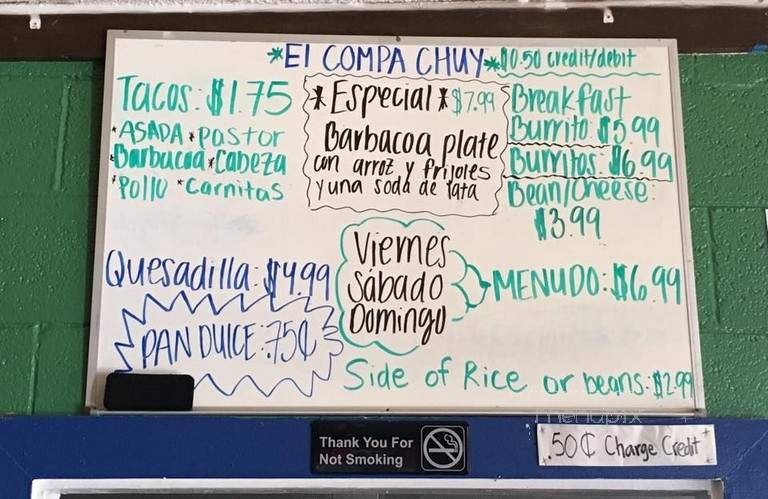 *El COMPA CHUY* $0.50 credit/debit
Tacos: $1.75
*ASADA *Pastor
*Barbacoa *Cabeza
*Pollo *Carnitas
*Especial* $7.99
Barbacoa plate
con arroz y frijoles
y una soda de lata
Breakfast
Burrito: $5.99
Burritos: $6.99
Bean/Cheese:
$3.99
Quesadilla: $4.99
Viernes
Sábado
Domingo
MENUDO: $6.99
PAN DULCE: .75¢
Side of Rice or beans: $2.99
menupix
Thank You For
Not Smoking
.50¢ Charge Credit